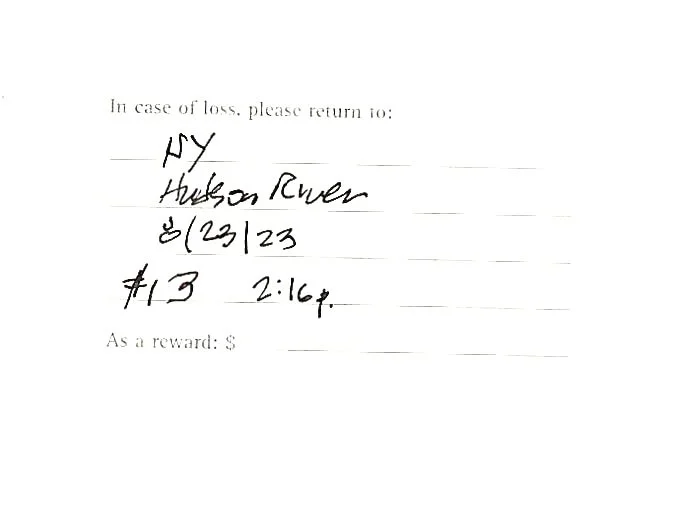 In case of loss, please return to:
NY
Hudson River
8/23/23
#13 2:16p.
As a reward: $